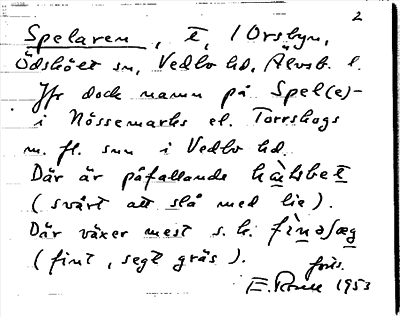 2
Spelaren, t, i Orsbyn,
Ödskölt sn, Vedbo hd, Älvsb. l.
Jfr dock namn på Spel(e)-
i Nössemarks el. Torrskogs
m. fl. snn i Vedbo hd.
Där är påfallande hàlsbet
(svårt att slå med lie).
Där växer mest s. k. fìnəsæg
(fint, segt gräs).
forts.
1953